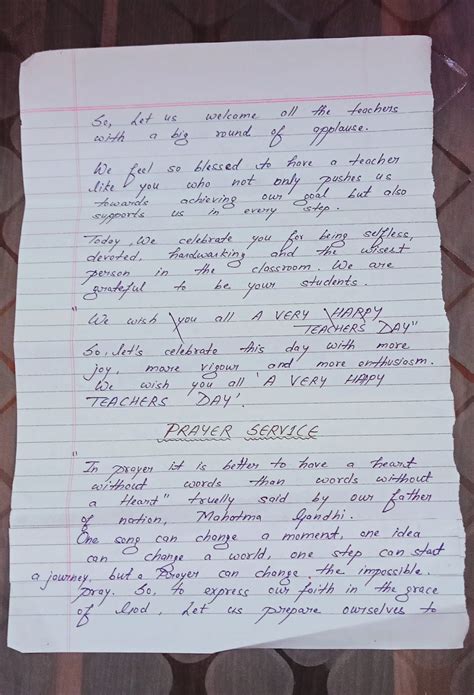 So, Let us welcome all the teachers
with a big round of applause.
We feel so blessed to have a teacher
like you who not only pushes us
towards achieving our goal but also
supports us in every step.
Today, We celebrate you for being selfless,
devoted, hardworking and the wisest
person in the classroom. We are
grateful to be your students.
"We wish you all A VERY HAPPY
TEACHERS DAY"
So, let's celebrate this day with more
joy, more vigour and more enthusiasm.
We wish you all 'A VERY HAPPY
TEACHERS DAY'.
PRAYER SERVICE
"In prayer it is better to have a heart
without words than words without
a Heart" truelly said by our father
of nation, Mahatma Gandhi.
One song can change a moment, one idea
can change a world, one step can start
a journey, but a Prayer can change the impossible.
pray. So, to express our faith in the grace
of God, Let us prepare ourselves to